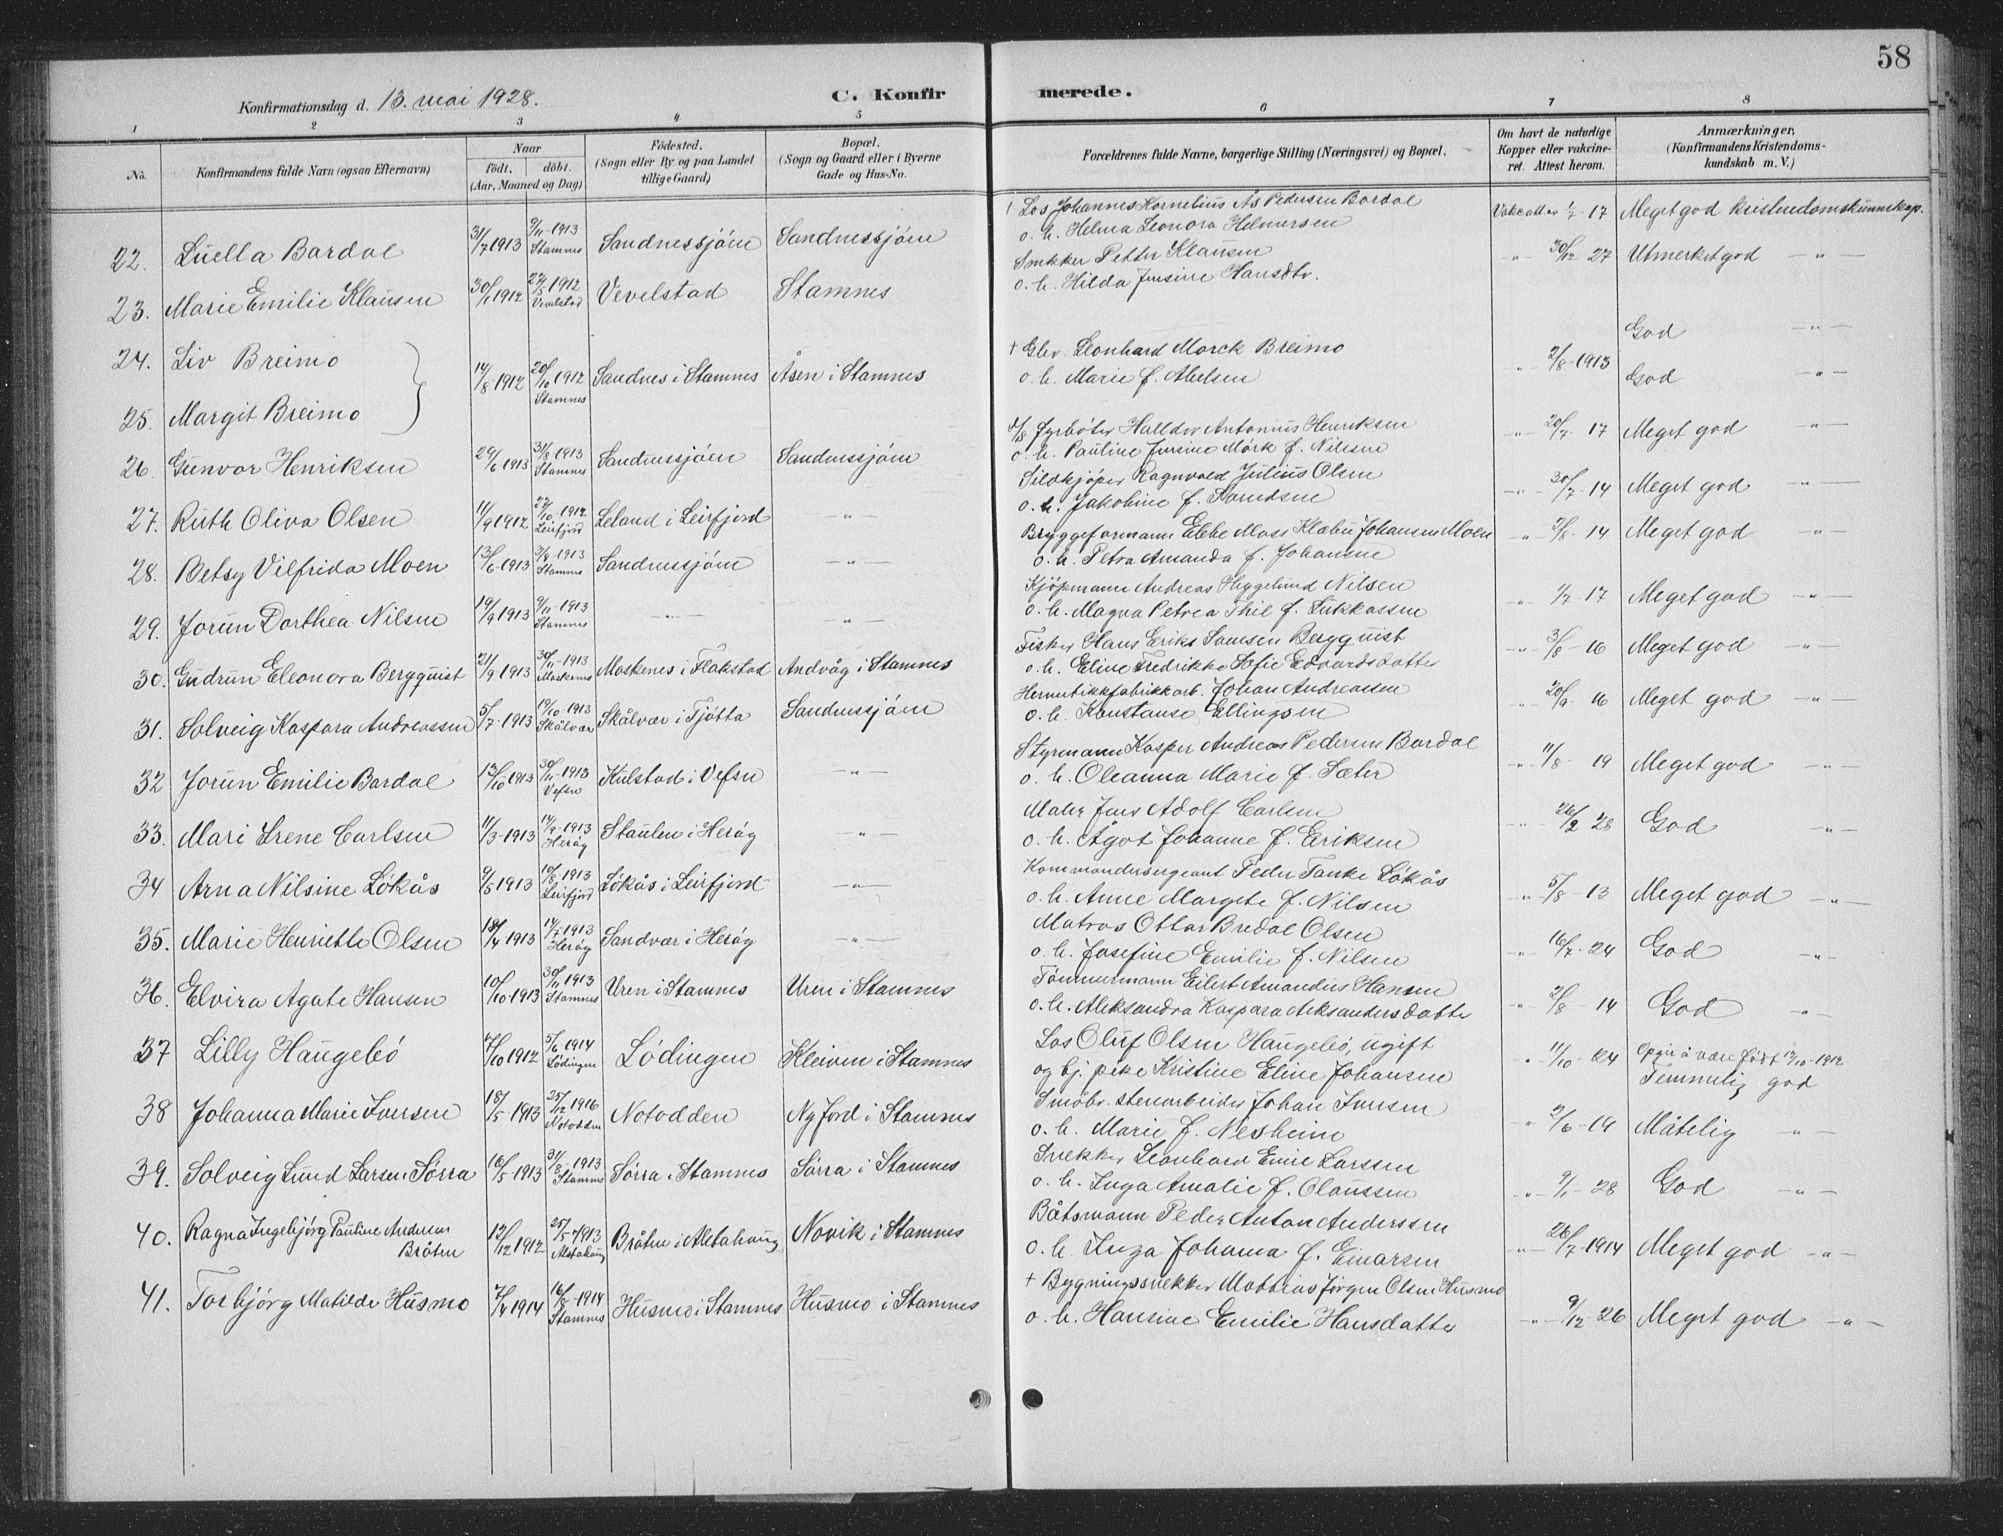 58
Konfirmationsdag d. 13. mai 1928.
C. Konfirmerede.
1 2 3 4 5 6 7 8
No.
Konfirmandens fulde Navn (ogsaa Efternavn)
Naar
födt. döbt.
(Aar, Maaned og Dag)
Födested.
(Sogn eller By og paa Landet
tillige Gaard)
Bopæl.
(Sogn og Gaard eller i Byerne
Gade og Hus-No.
Forældrenes fulde Navne, borgerlige Stilling (Næringsvei) og Bopæl.
Om havt de naturlige
Kopper eller vakcine-
ret. Attest herom.
Anmærkninger,
(Konfirmandens Kristendoms-
kundskab m. V.)
22. Luella Bardal 31/7 1913 9/11-1913 Stamnes Sandnessjöen Sandnessjöen
+ Los Johannes Kornelius Ås Pedersen Bardal
o. h. Helma Leonora Helmersen
Vakc.att. 1/7-17 Meget god kristendomskunnskap.
23. Marie Emilie Klausen 30/1 1912 27/5 1912 Vevelstad Vevelstad Stamnes
Snekker Petter Klausen
o. h. Hilda Jensine Hansdtr.
-"- 30/12 27 Utmerket god -"-
24. Liv Breimo
25. Margit Breimo
14/8-1912 20/10 1912 Stamnes Sandnes i Stamnes Åsen i Stamnes
+ Gbr. Leonhard Marck Breimo
o. h. Marie f. Abelsen
-"- 2/8-1913 God -"-
God -"-
26. Gunvor Henriksen 29/6 1913 31/8-1913 Stamnes Sandnessjöen Sandnessjöen
Fyrböter Halldor Antonius Henriksen
o. h. Pauline Jensine Mörk f. Nilsen
-"- 20/7-17 Meget god -"-
27. Ruth Oliva Olsen 11/9 1912 27/10-1912 Leirfjord Leland i Leirfjord -"-
Sildkjöper Ragnvald Julius Olsen
o. h. Jakobine f. Svendsen
-"- 30/7-14 Meget god -"-
28. Betsy Vilfrida Moen 13/6-1913 3/8-1913 Stamnes Sandnessjöen -"-
Bryggeformann Ebbe Moss Klæbu Johansen Moen
o. h. Petra Amanda f. Johansen
-"- 2/8-14 Meget god -"-
29. Jorun Dorthea Nilsen 19/9 1913 9/11-1913 Stamnes -"- -"-
Kjöpmann Andreas Hyggelund Nilsen
o. h. Magna Petrea Thil f. Lukkassen
-"- 1/7-17 Meget god -"-
30. Gudrun Eleonora Bergquist 21/9 1913 30/11-1913 Moskenes Moskenes i Flakstad Andvåg i Stamnes
Fisker Hans Eriks Samsen Bergquist
o. h. Eline Fredrikke Sofie Edvardsdatter
-"- 3/8-16 Meget god -"-
31. Solveig Kaspara Andreassen 5/7-1913 19/10-1913 Skålvær Skålvær i Tjötta Sandnessjöen
Hermetikkfabrikkarb. Johan Andreassen
o. h. Konstanse Ellingsen
-"- 20/9-16 Meget god -"-
32 Jorun Emilie Bardal 13/10-1913 30/11-1913 Vefsn Kulstad i Vefsn -"-
Styrmann Kasper Andreas Pedersen Bardal
o. h. Oleanna Marie f. Sæter
-"- 11/8-19 Meget god -"-
33. Mari Irene Carlsen 11/3-1913 14/9-1913 Heröy Staulen i Heröy -"-
Maler Jens Adolf Carlsen
o. h. Ågot Johanne f. Eriksen
-"- 26/2 28 God -"-
34 Arna Nilsine Lökås 9/5 1913 10/8-1913 Leirfjord Lökås i Leirfjord -"-
Kommandersergeant Peder Tanke Lökås
o. h. Anne Margete f. Nilsen
-"- 5/8-13 Meget god -"-
35. Marie Henriette Olsen 18/4 1913 14/7 1913 Heröy Sandvær i Heröy -"-
Matros Ottar Bredal Olsen
o. h. Josefine Emilie f. Nilsen
-"- 16/7-24 God -"-
36. Elvira Agate Hansen 10/10 1913 30/11 1913 Stamnes Uren i Stamnes Uren i Stamnes
Tömmermann Eilert Amandus Hansen
o. h. Aleksandra Kaspara Aleksandersdatter
-"- 2/8-14 God -"-
37 Lilly Haugebö 7/10 1912 5/6 1914 Lödingen Lödingen Kleiven i Stamnes
Los Oluf Olsen Haugebö, ugift
og bj. pike Kristine Eline Johansen
-"- 11/10-24 Opgir å være född 17/10-1912
Temmelig god
38 Johanna Marie Iversen 18/5-1913 25/12 1916 Notodden Notodden Nyjord i Stamnes
Småbr. stenarbeider Johan Iversen
o. h. Marie f. Nesheim
-"- 2/6-19 Måtelig -"-
39. Solveig Lund Larsen Sörra 16/5 1913 31/8-1913 Stamnes Sörra i Stamnes Sörra i Stamnes
Snekker Leonhard Emil Larssen
o. h. Inga Amalie f. Olaussen
-"- 9/1-28 God -"-
40. Ragna Ingebjörg Pauline Andersen
Bråten
12/12 1912 25/5-1913 Alstahaug Bråten i Alstahaug Novik i Stamnes
Båtsmann Peder Anton Anderssen
o. h. Inga Johanna f. Einarsen
-"- 26/7-1914 Meget god -"-
41. Torbjörg Matilde Husmo 7/4 1914 16/8-1914 Stamnes Husmo i Stamnes Husmo i Stamnes
+ Bygningssnekker Mathias Jörgen Olsen Husmo
o. h. Hansine Emilie Hansdatter
-"- 9/12 26 Meget god -"-